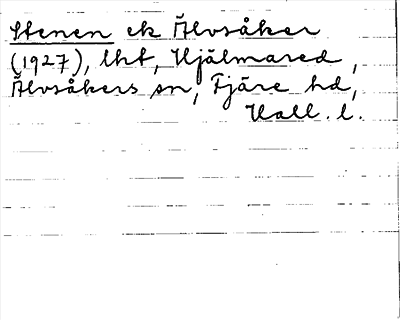 Stenen ek Älvsåker
(1927), lht, Hjälmared,
Älvsåkers sn, Fjäre hd,
Hall. l.